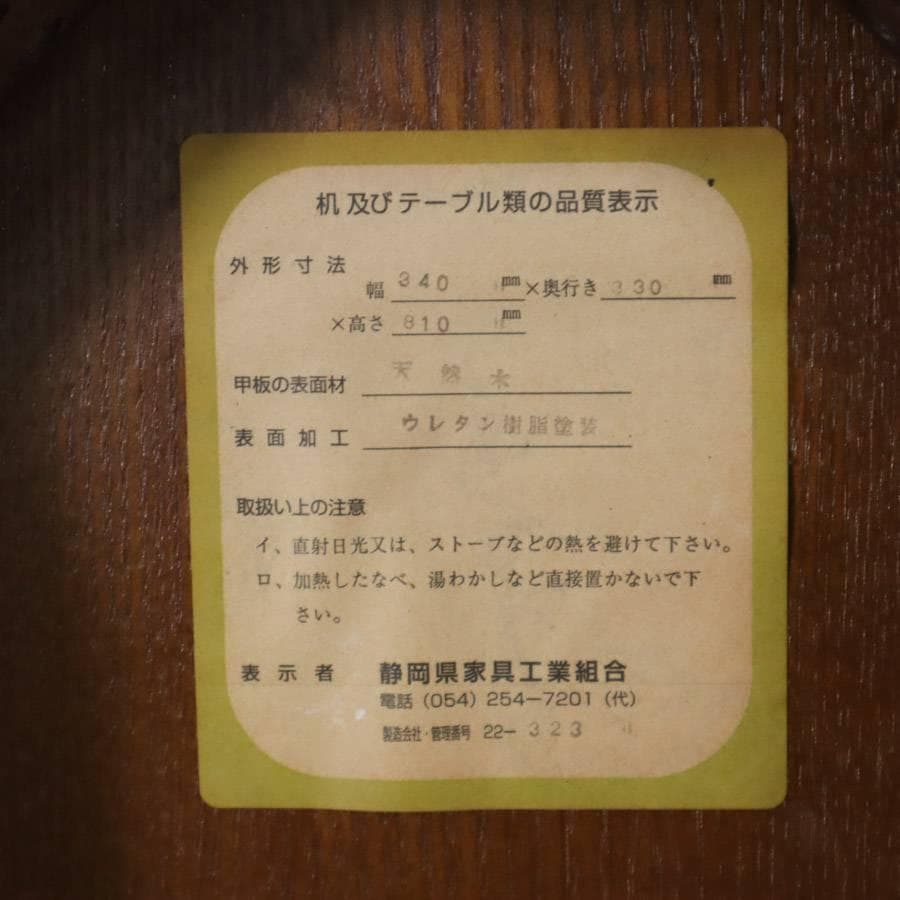 机及びテーブル類の品質表示
外形寸法
幅 340 mm ×奥行き 330 mm
×高さ 810 mm
甲板の表面材 天然木
表面加工 ウレタン樹脂塗装
取扱い上の注意
イ、直射日光又は、ストーブなどの熱を避けて下さい。
ロ、加熱したなべ、湯わかしなど直接置かないで下
さい。
表示者 静岡県家具工業組合
電話 (054) 254-7201 (代)
製造会社・管理番号 22-323